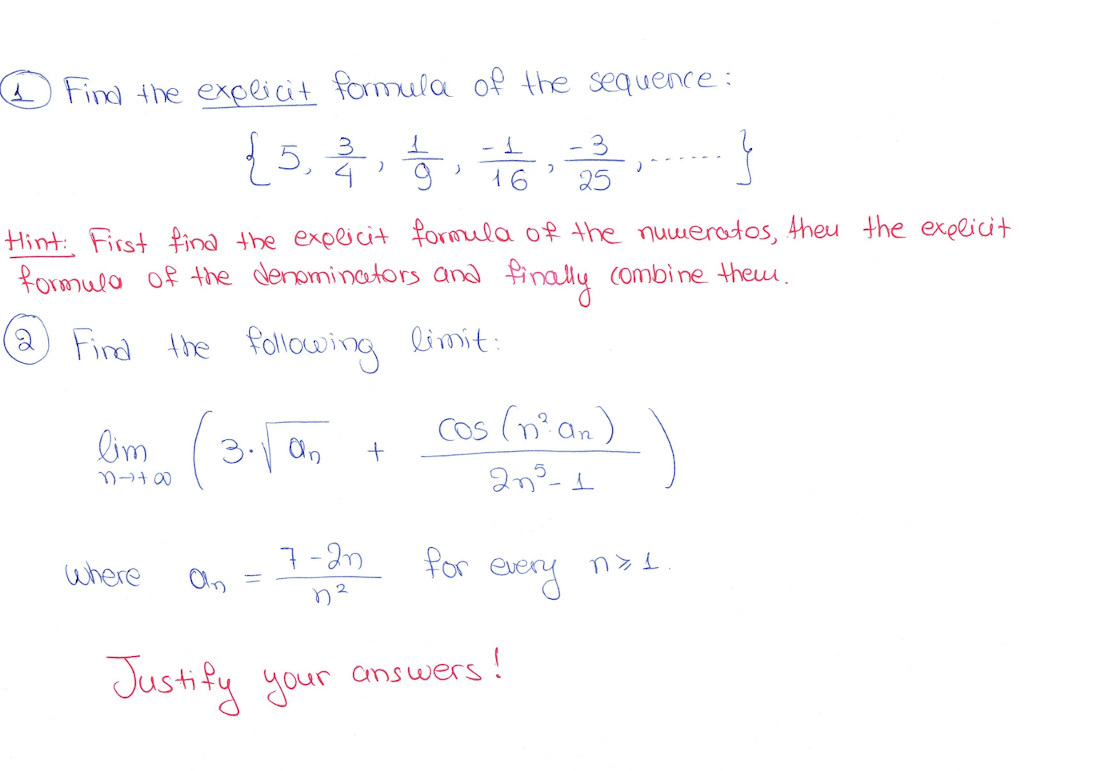 1 Find the explicit formula of the sequence:
{ 5, 3/4, 1/9, -1/16, -3/25, ...... }
Hint: First find the explicit formula of the numeratos, then the explicit
formula of the denominators and finally combine them.
2 Find the following limit:
lim n→+∞ ( 3·√an + cos (n²·an) / 2n⁵-1 )
where an = 7-2n / n² for every n≥1.
Justify your answers!